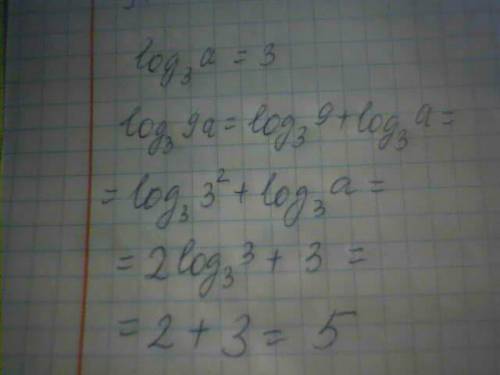 log₃ a = 3
log₃ 9a = log₃ 9 + log₃ a =
= log₃ 3² + log₃ a =
= 2 log₃ 3 + 3 =
= 2 + 3 = 5